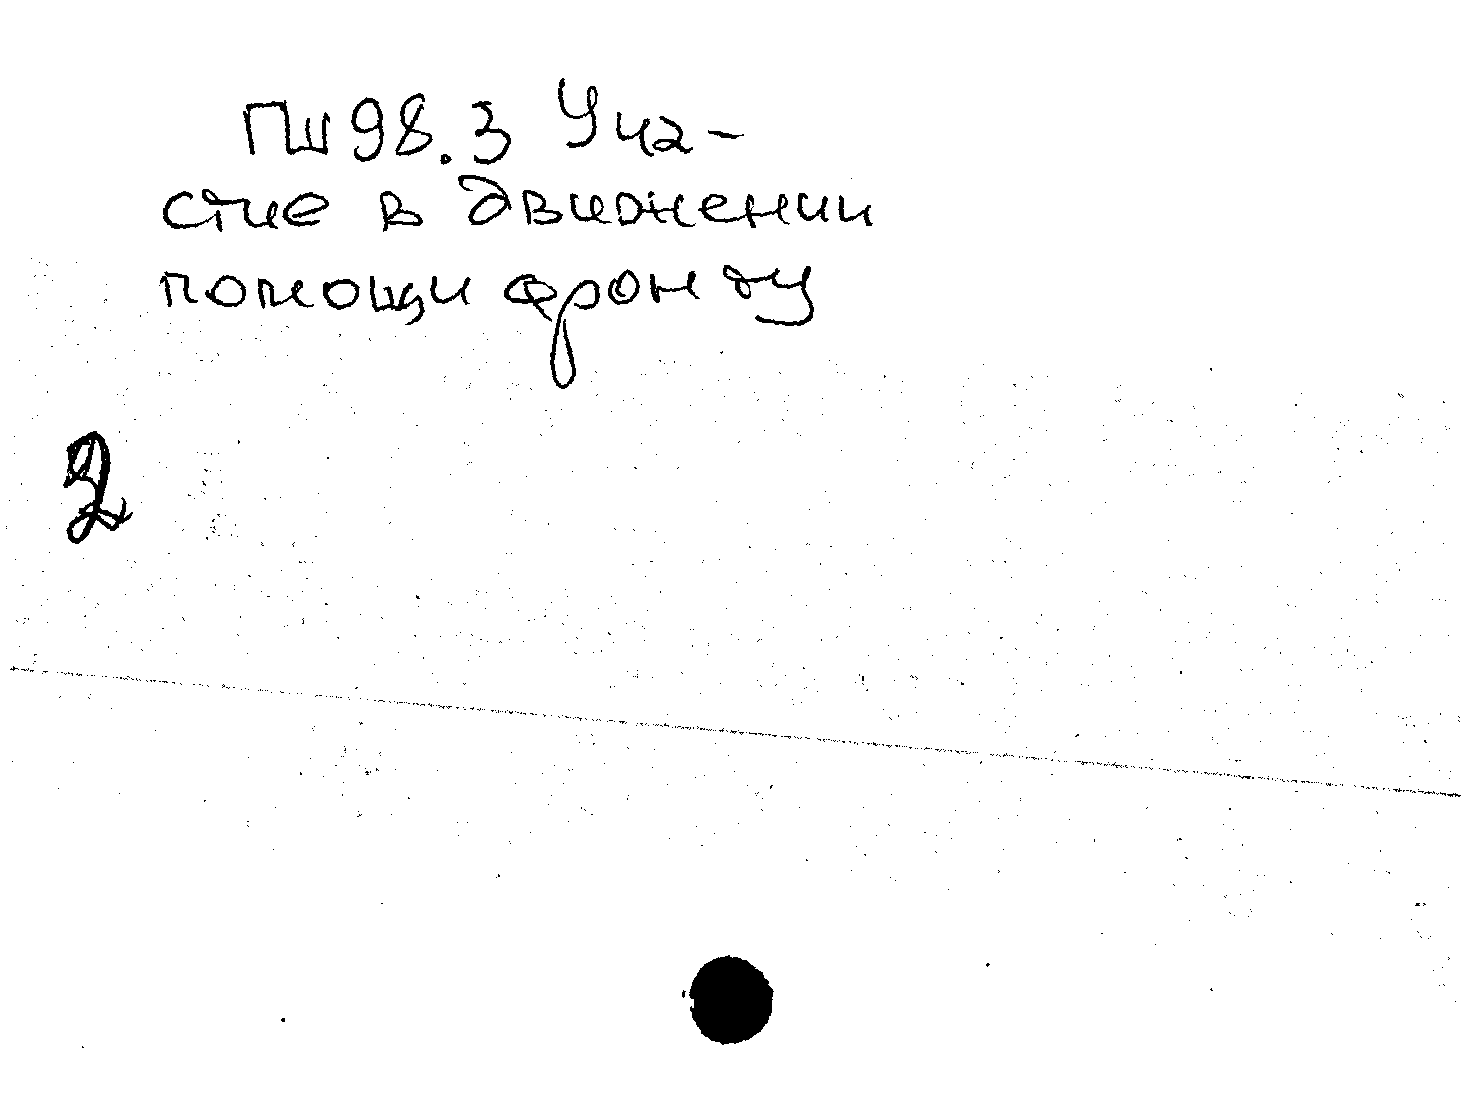 ПШ98.3 Уча-
стие в движении
помощи фронту
2